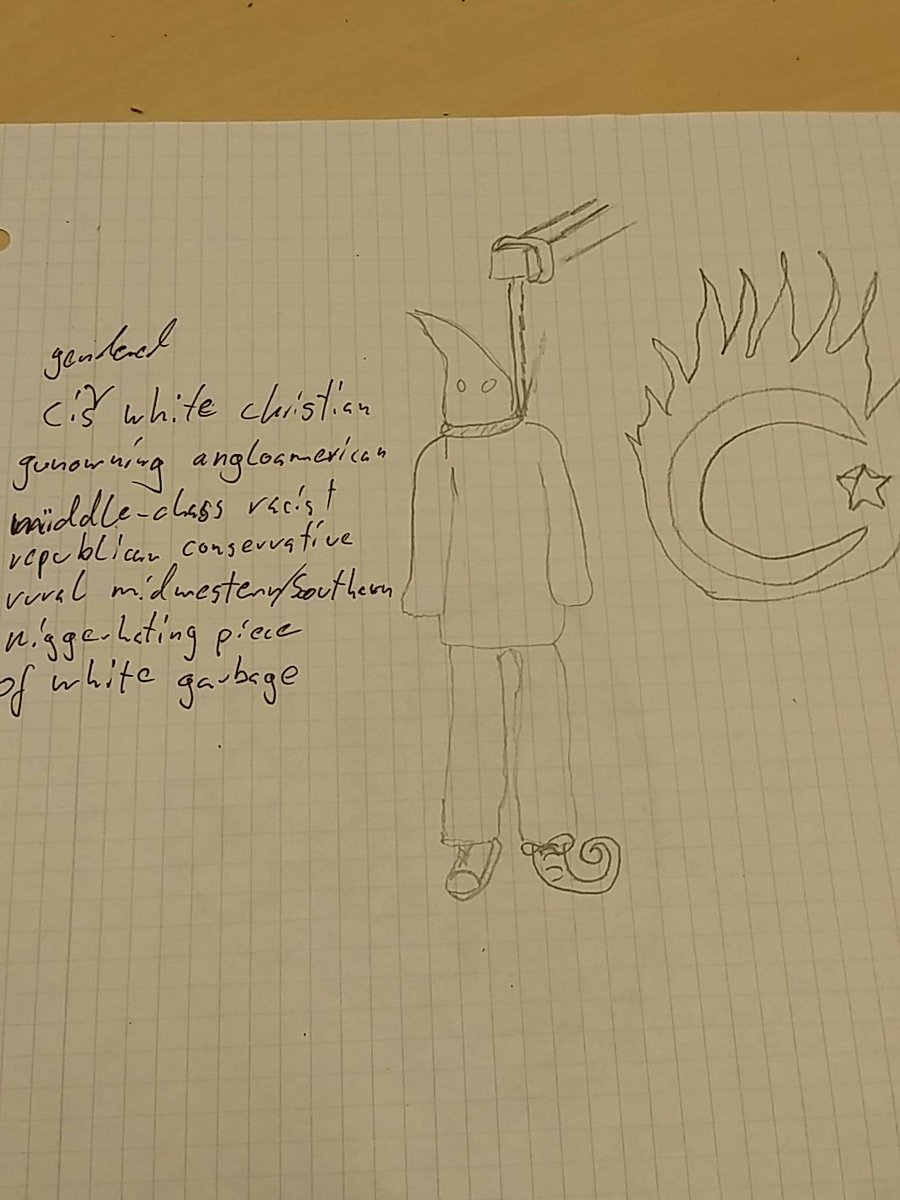 gendered
cis white christian
gunowning angloamerican
middle-class racist
republican conservative
rural midwestern/southern
nigger-hating piece
of white garbage